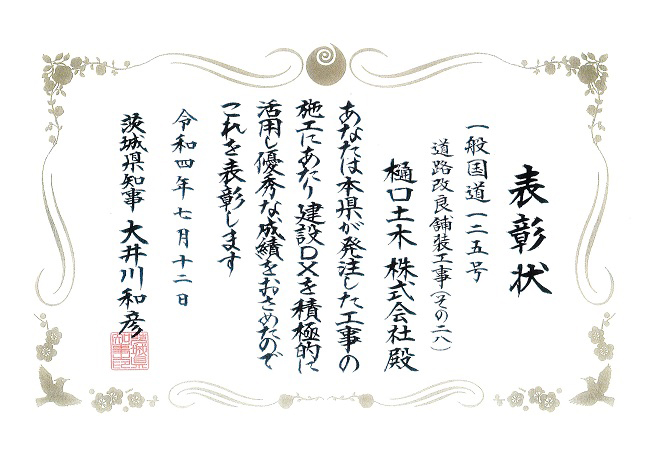 表彰状
一般国道一二五号
道路改良舗装工事(その二八)
樋口土木株式会社殿
あなたは本県が発注した工事の
施工にあたり建設DXを積極的に
活用し優秀な成績をおさめたので
これを表彰します
令和四年七月十二日
茨城県知事 大井川和彦
茨城県
知事之印